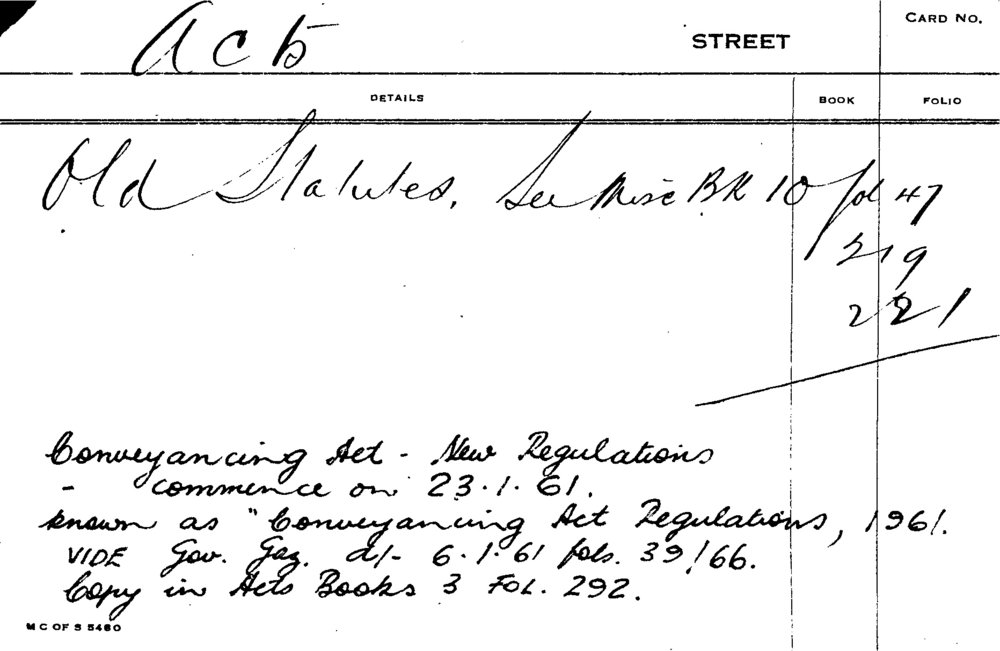 Acts STREET CARD NO.
DETAILS BOOK FOLIO
Old Statutes. See Misc BK 10 fol 47
219
221
Conveyancing Act - New Regulations
- commence on 23.1.61.
known as "Conveyancing Act Regulations, 1961.
VIDE Gov. Gaz. d/- 6.1.61 fols. 39/66.
Copy in Acts Books 3 FOL. 292.
M C OF S 5460